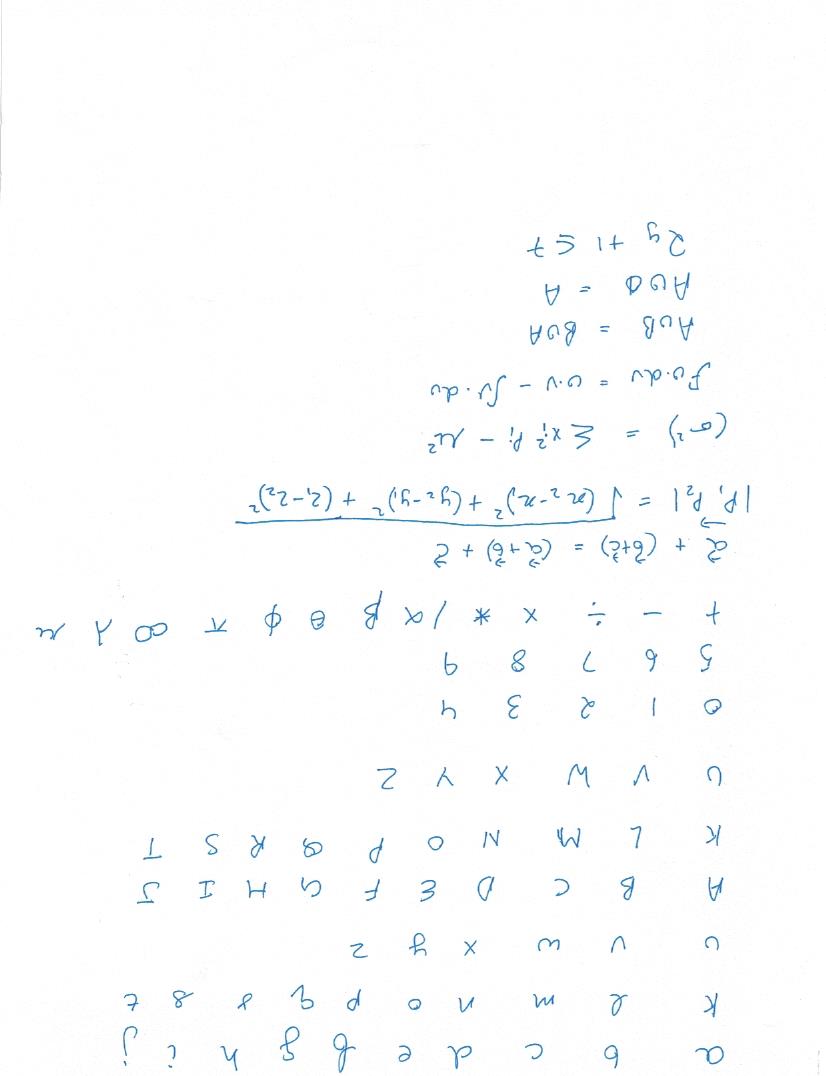 a b c d e f g h i j
k l m n o p q r s t
u v w x y z
A B C D E F G H I J
K L M N O P Q R S T
U V W X Y Z
0 1 2 3 4
5 6 7 8 9
+ − ÷ × * / α β θ φ π ∞ λ μ
a⃗ + (b⃗+c⃗) = (a⃗+b⃗) + c⃗
|P₁ P₂| = √(x₂-x₁)² + (y₂-y₁)² + (z₁-z₂)²
(σ²) = Σxᵢ² Pᵢ - μ²
∫u.dv = u.v - ∫v.du
A∪B = B∪A
A∪φ = A
2y +1 ≤ 7